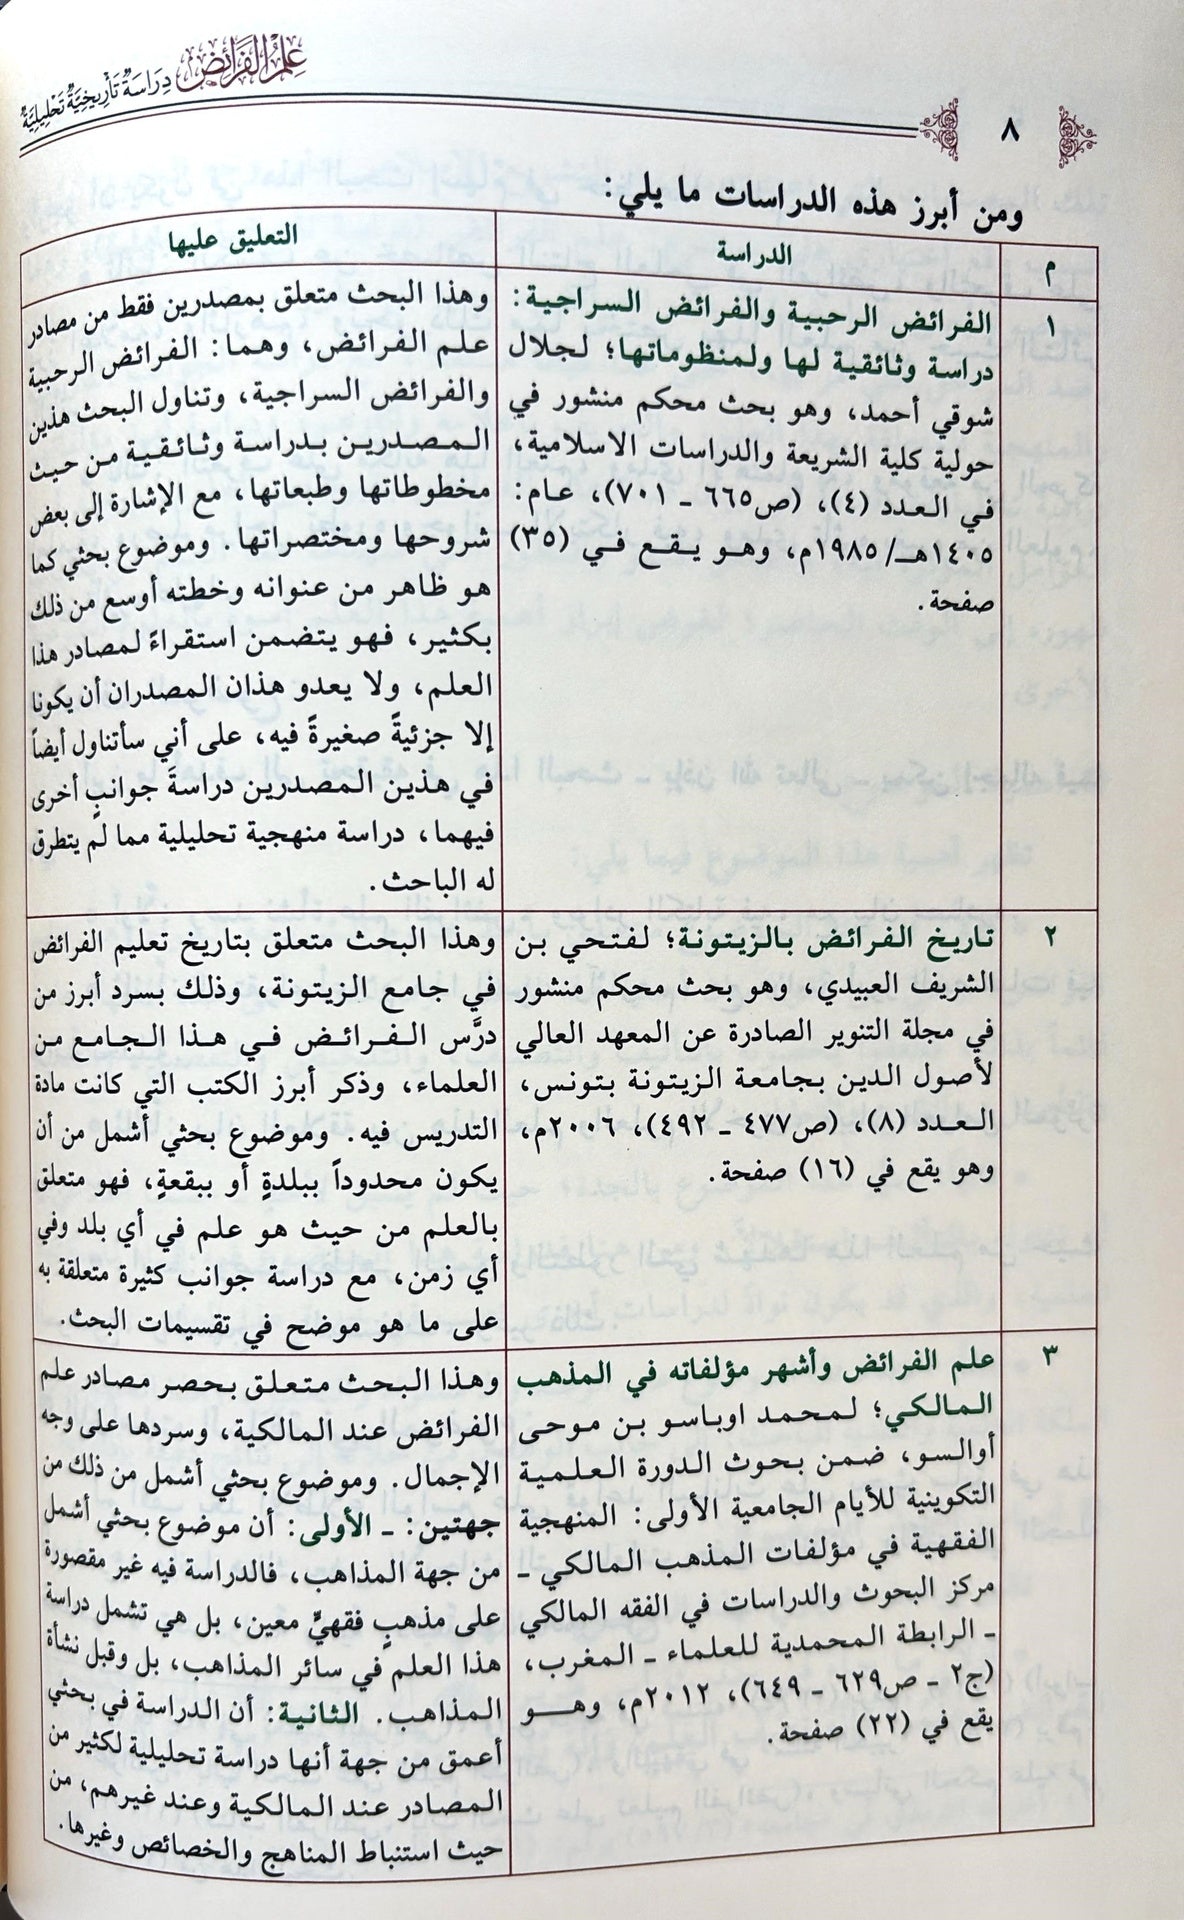 علم الفرائض دراسة تأريخية تحليلية
٨
ومن أبرز هذه الدراسات ما يلي:
م
الدراسة
التعليق عليها
١
الفرائض الرحبية والفرائض السراجية:
دراسة وثائقية لها ولمنظوماتها؛ لجلال
شوقي أحمد، وهو بحث محكم منشور في
حولية كلية الشريعة والدراسات الاسلامية،
في العدد (٤)، (ص٦٦٥ ـ ٧٠١)، عام:
١٤٠٥هـ/١٩٨٥م، وهو يقع في (٣٥)
صفحة.
وهذا البحث متعلق بمصدرين فقط من مصادر
علم الفرائض، وهما: الفرائض الرحبية
والفرائض السراجية، وتناول البحث هذين
المصدرين بدراسة وثائقية من حيث
مخطوطاتها وطبعاتها، مع الإشارة إلى بعض
شروحها ومختصراتها. وموضوع بحثي كما
هو ظاهر من عنوانه وخطته أوسع من ذلك
بكثير، فهو يتضمن استقراءً لمصادر هذا
العلم، ولا يعدو هذان المصدران أن يكونا
إلا جزئيةً صغيرةً فيه، على أني سأتناول أيضاً
في هذين المصدرين دراسةَ جوانبٍ أخرى
فيهما، دراسة منهجية تحليلية مما لم يتطرق
له الباحث.
٢
تاريخ الفرائض بالزيتونة؛ لفتحي بن
الشريف العبيدي، وهو بحث محكم منشور
في مجلة التنوير الصادرة عن المعهد العالي
لأصول الدين بجامعة الزيتونة بتونس،
العدد (٨)، (ص٤٧٧ ـ ٤٩٢)، ٢٠٠٦م،
وهو يقع في (١٦) صفحة.
وهذا البحث متعلق بتاريخ تعليم الفرائض
في جامع الزيتونة، وذلك بسرد أبرز من
درَّس الفرائض في هذا الجامع من
العلماء، وذكر أبرز الكتب التي كانت مادة
التدريس فيه. وموضوع بحثي أشمل من أن
يكون محدوداً ببلدةٍ أو ببقعةٍ، فهو متعلق
بالعلم من حيث هو علم في أي بلد وفي
أي زمن، مع دراسة جوانب كثيرة متعلقة به
على ما هو موضح في تقسيمات البحث.
٣
علم الفرائض وأشهر مؤلفاته في المذهب
المالكي؛ لمحمد اوباسو بن موحى
أوالسو، ضمن بحوث الدورة العلمية
التكوينية للأيام الجامعية الأولى: المنهجية
الفقهية في مؤلفات المذهب المالكي ـ
مركز البحوث والدراسات في الفقه المالكي
ـ الرابطة المحمدية للعلماء ـ المغرب،
(ج٢ ـ ص٦٢٩ ـ ٦٤٩)، ٢٠١٢م، وهو
يقع في (٢٢) صفحة.
وهذا البحث متعلق بحصر مصادر علم
الفرائض عند المالكية، وسردها على وجه
الإجمال. وموضوع بحثي أشمل من ذلك من
جهتين: ـ الأولى: أن موضوع بحثي أشمل
من جهة المذاهب، فالدراسة فيه غير مقصورة
على مذهبٍ فقهيٍّ معين، بل هي تشمل دراسة
هذا العلم في سائر المذاهب، بل وقبل نشأة
المذاهب. الثانية: أن الدراسة في بحثي
أعمق من جهة أنها دراسة تحليلية لكثير من
المصادر عند المالكية وعند غيرهم، من
حيث استنباط المناهج والخصائص وغيرها.